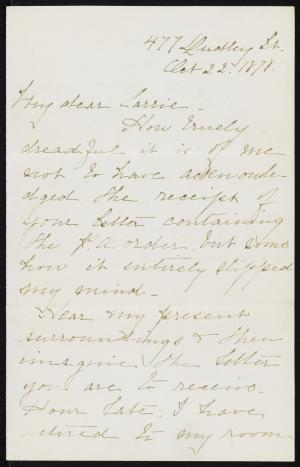 477 Dudley St.
Oct 22. 1878.
My dear Carrie -
How truely
dreadful it is of me
not to have acknowle-
dged the receipt of
your letter containing
the P.O. order, but some
how it entirely slipped
my mind. -
Hear my present
surroundings & then
imagine the letter
you are to receive.
Hour late, I have
retired to my room